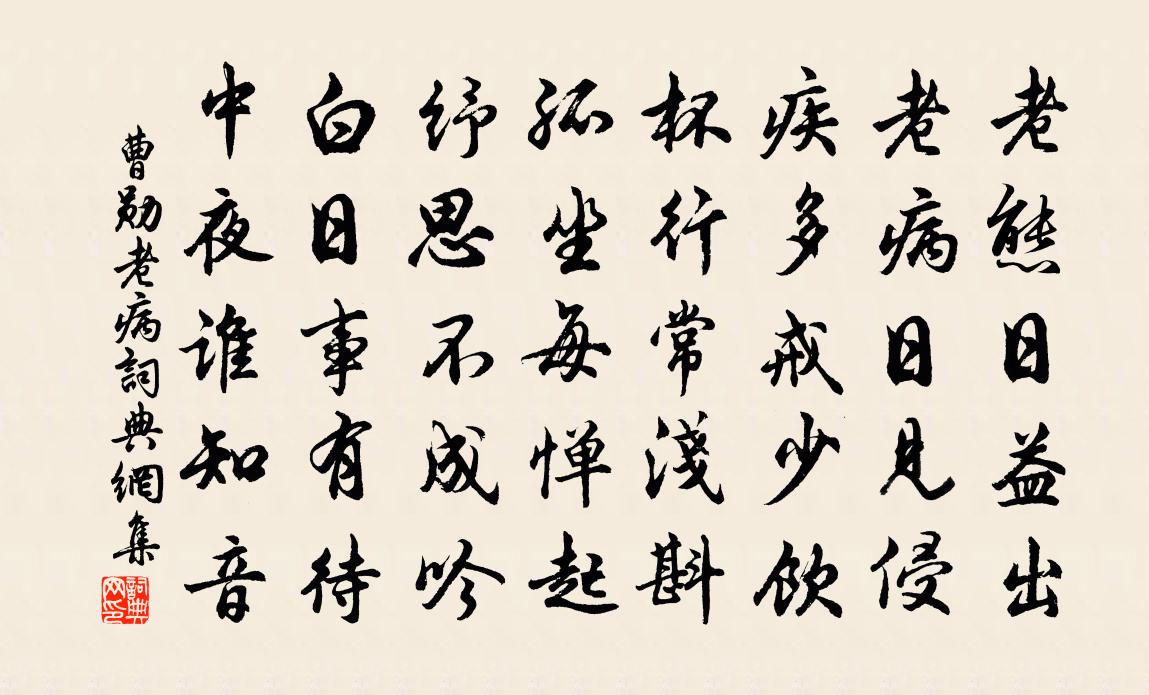 老態日益出
老病日見侵
疾多戒少飲
杯行常淺斟
孤坐每憚起
紓思不成吟
白日事有待
中夜誰知音
曹勛老病詞典網集
詞典網印